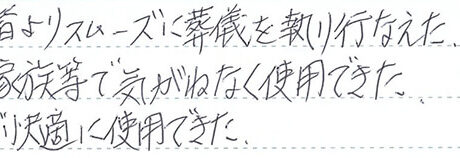 よりスムーズに葬儀を執り行なえた.
家族等で気がねなく使用できた.
快適に使用できた.